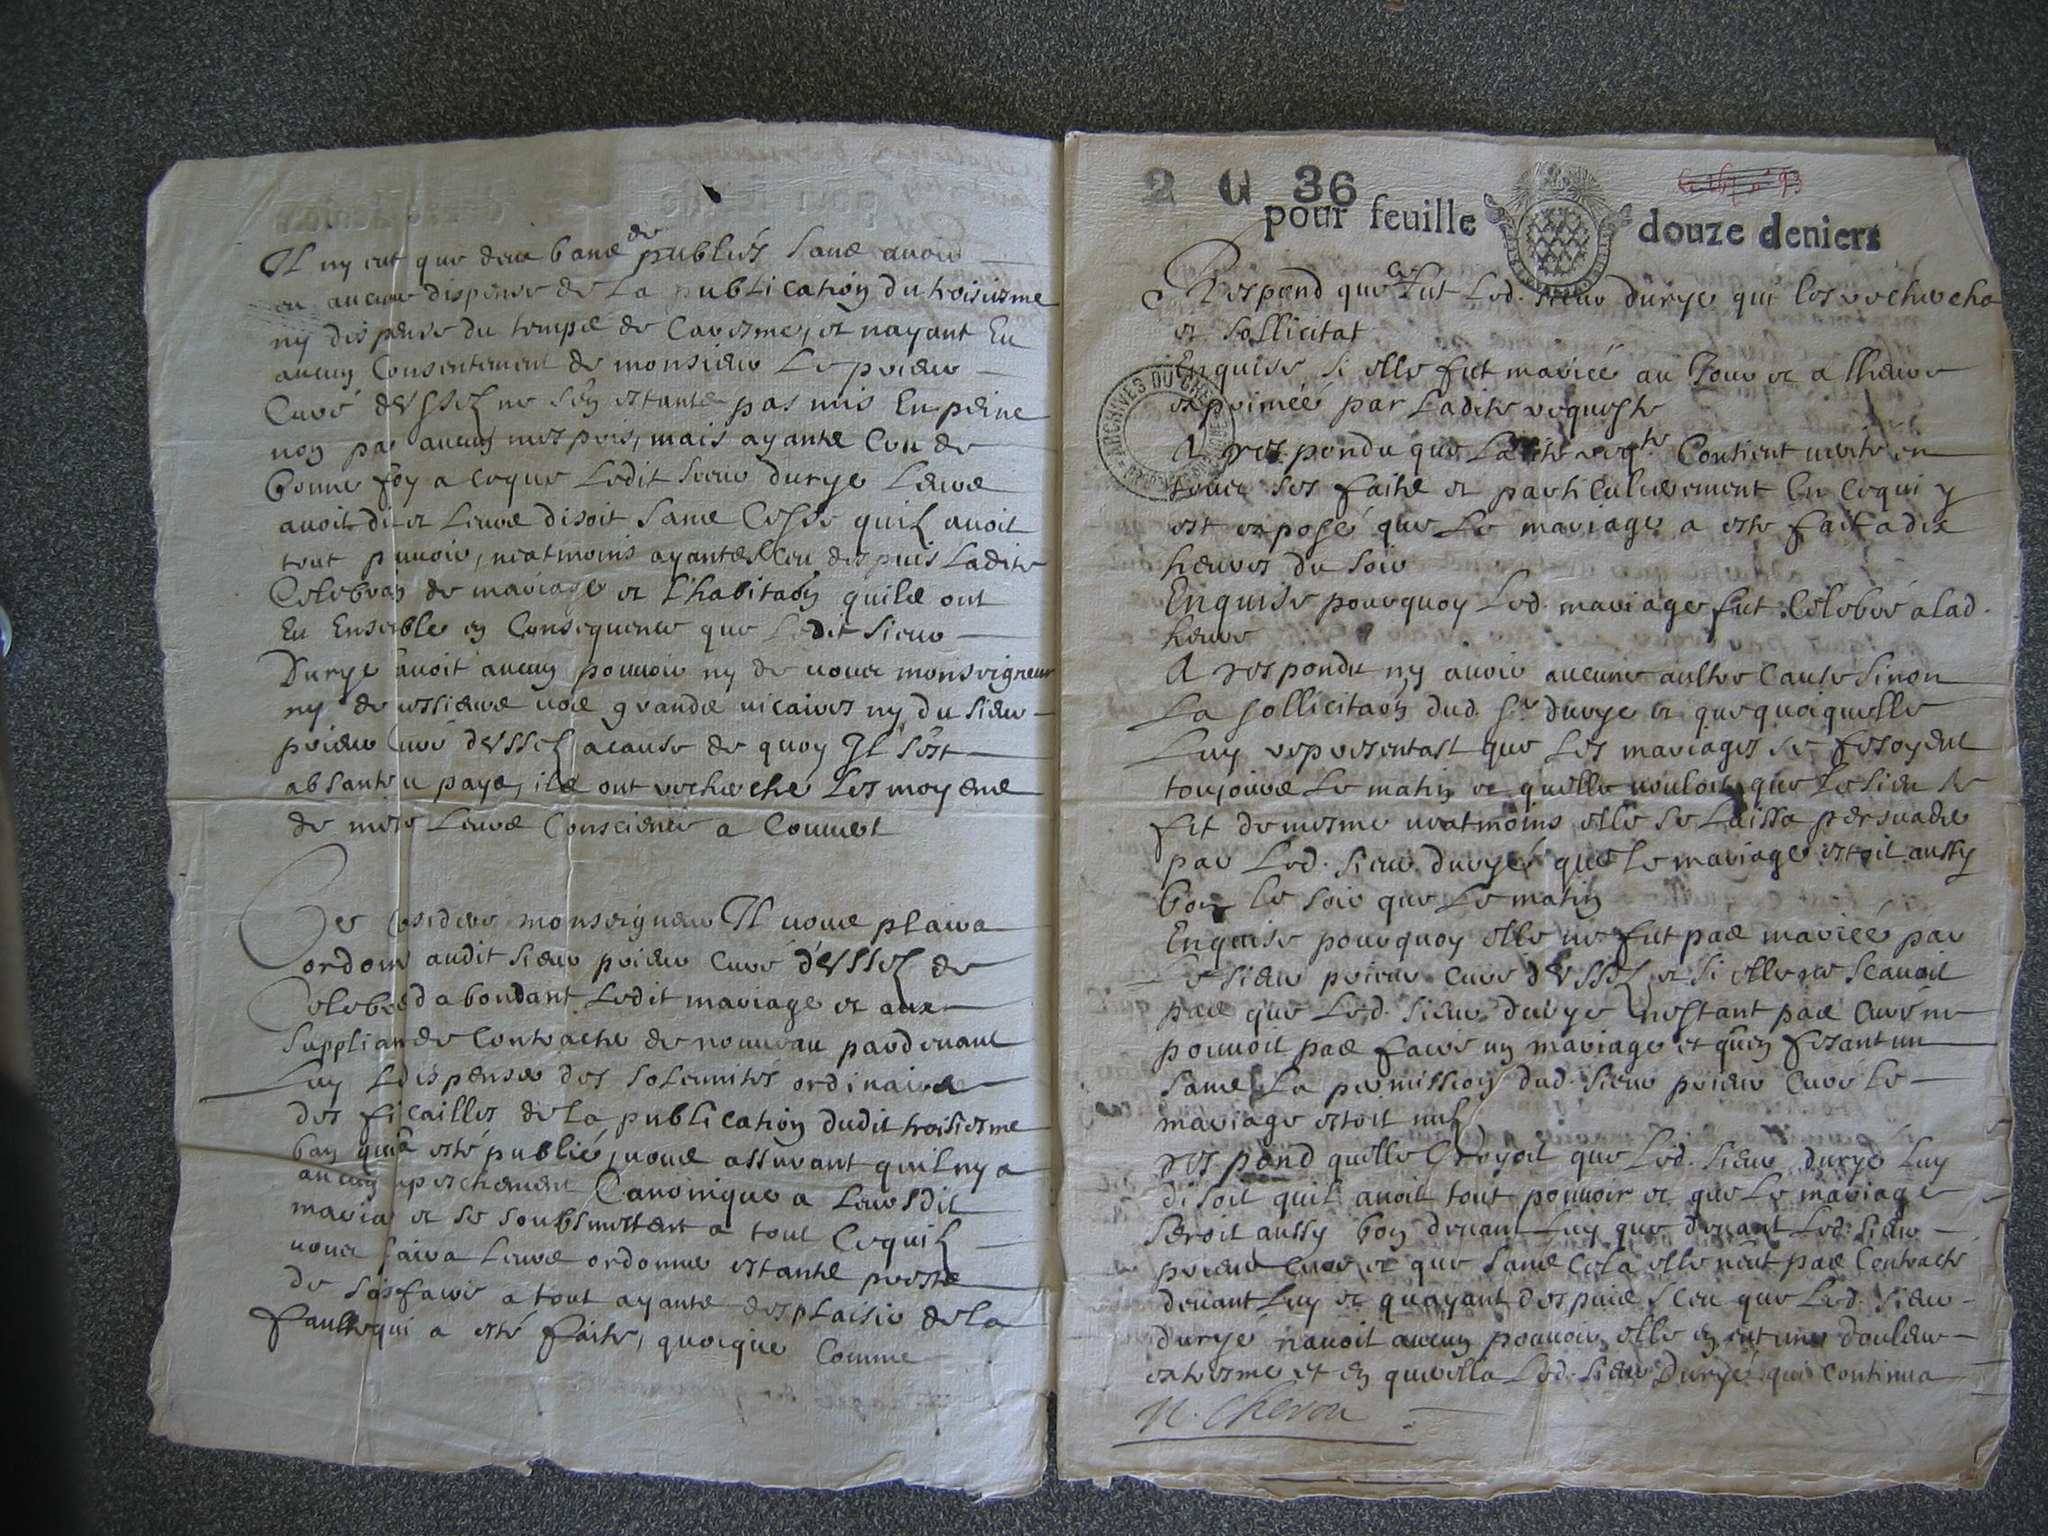 Il ny eut que deux bans de publiés sans avoir
eu aucune dispense de la publication du troisiesme
ny dispense du temps de Caresme, et nayant Eu
aucun Consentement de monsieur Le prieur
Curé d'Ussel ne sen estants pas mis En peine
non par aucun mespris, mais ayants Creu de
bonne foy a ceque Ledit sieur durye Leurs
avoit dit et Leurs disoit sans Cesse quil avoit
tout pouvoir, neatmoins ayants sceu despuis Ladite
Celebraon de mariage et Lhabitaon quils ont
Eu Ensemble en Consequence que Ledit sieur
Durye navoit aucun pouvoir ny de vous monseigneur
ny de messieurs vos grands vicaires ny du sieur
prieur Curé d'Ussel acause de quoy Il sest
absanté du pays, ils ont recherché Les moyens
de metre Leurs Conscience a Couvert
Ce Considéré monseigneur Il vous plaira
ordoner audit sieur prieur Curé d'Ussel de
Celebrer dabondant Ledit mariage et aux
suppliants de Contracter de nouveau pardevant
Luy Les dispenser des solemnités ordinaires
des ficailles de la publication dudit troisiesme
ban qui na esté publié, vous assurant quil ny a
aucun enpeschement Canonique a Leursdit
mariage et se soubsmettent a tout Cequil
vous plaira Leurs ordonner estants prests
de satisfaire a tout ayants desplaisir de la
faulte qui a esté faite, quoique Comme
2 G 36
pour feuille douze deniers
Respond que Ce fut Led. sieur durye qui les rechercha
et sollicitat
Enquise si elle fut mariée au Jour et a lheure
exprimée par Ladite requeste
ARCHIVES DU
A respondu que Ladite reqte Contient verité en
tous ses faits et particulierement En cequi y
est exposé que Le mariage a esté fait a dix
heures du soir
Enquise pourquoy Led. mariage fut Celebré a lad.
heure
A respondu ny avoir aucune aultre Cause sinon
La sollicitaon dud. sr durye et que quoiquelle
Luy representast que Les mariages se fesoyent
toujours Le matin et quelle vouloit que Le sien se
fit de mesme neatmoins elle se Laissa persuader
par Led. sieur durye que Le mariage estoit aussy
bon Le soir que Le matin
Enquise pourquoy elle ne fut pas mariée par
Le sieur prieur Curé d'Ussel et si elle ne scavoit
pas que Led. sieur durye nestant pas Curé ne
pouvoit pas faire un mariage et quen fesant un
sans La permission dud. sieur prieur Curé Le
mariage estoit nul
Respond quelle Croyoit que Led. sieur durye Luy
disoit quil avoit tout pouvoir et que Le mariage
seroit aussy bon devant Luy que devant Led. sieur
prieur Curé et que sans Cela elle neut pas Contracté
devant Luy et quayant despuis sceu que Led. sieur
durye navoit aucun pouvoir elle en eut une douleur
extresme et en querella Led. sieur Durye qui Continua
N. Cheron